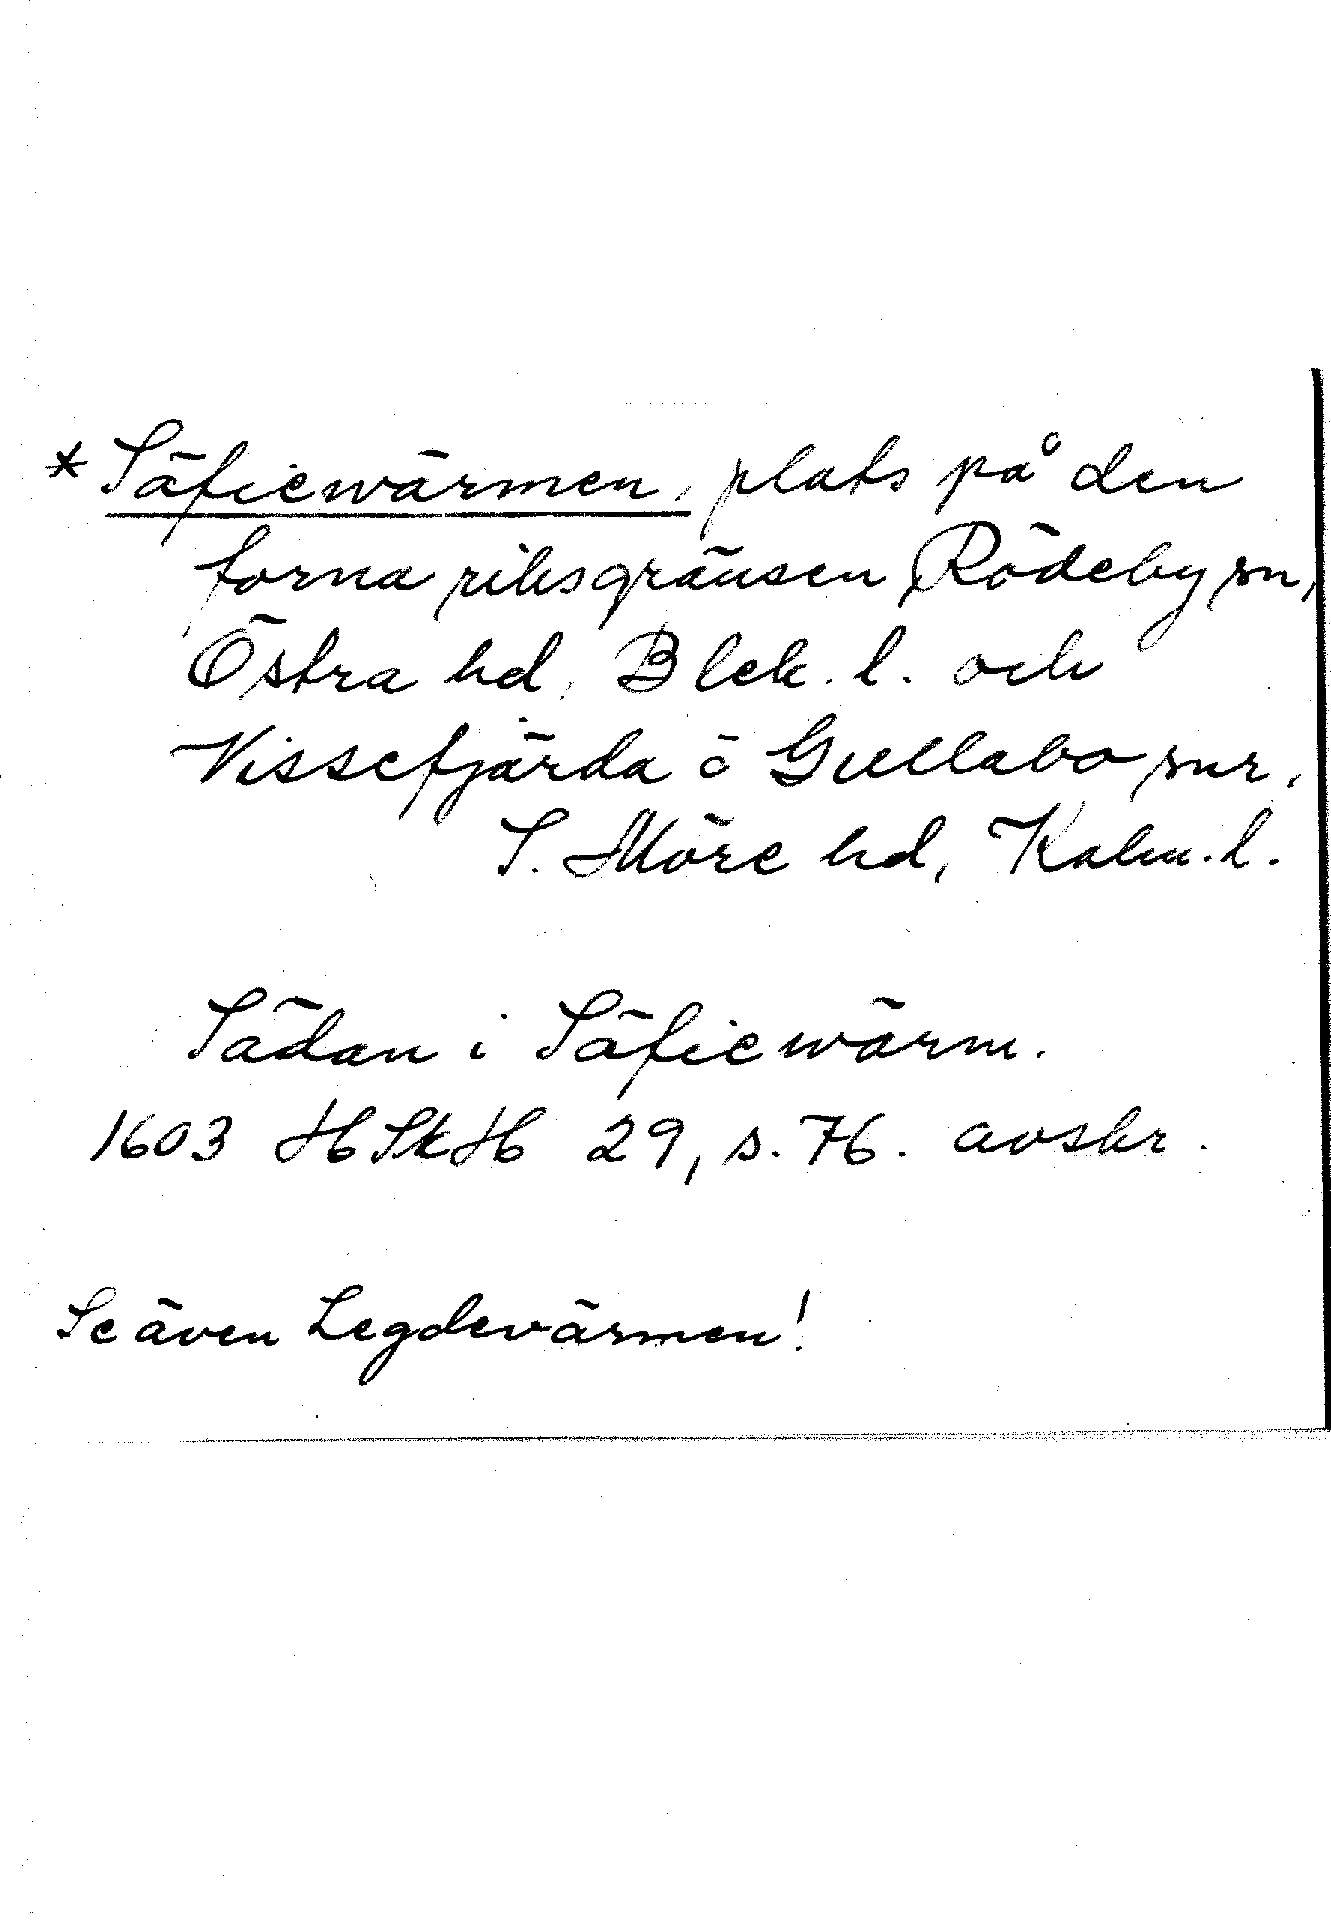 * Säfiewärmen, plats på den
forna riksgränsen Rödeby sn,
Östra hd, Blek. l. och
Vissefjärda ö Gullabo snr,
S. Möre hd, Kalm. l.
Sädan i Säfiewärm.
1603 HSkH 29, s. 76. avskr.
Se även Legdevärmen!